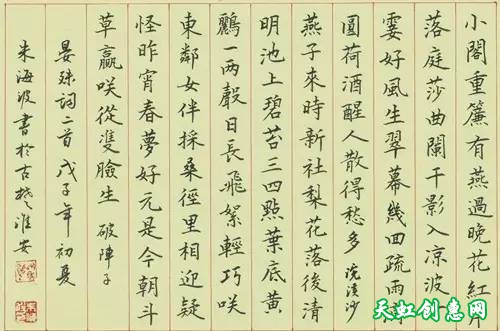 小閣重簾有燕過晚花紅片
落庭莎曲闌干影入凉波
霎好風生翠幕幾回疏雨
圓荷酒醒人散得愁多 浣溪沙
燕子來時新社梨花落後清
明池上碧苔三四點葉底黃
鸝一兩聲日長飛絮輕巧咲
東鄰女伴採桑徑里相迎疑
怪昨宵春夢好元是今朝斗
草贏咲從雙臉生 破陣子
晏殊詞二首戊子年初夏
朱海波書於古楚淮安
天虹创意网